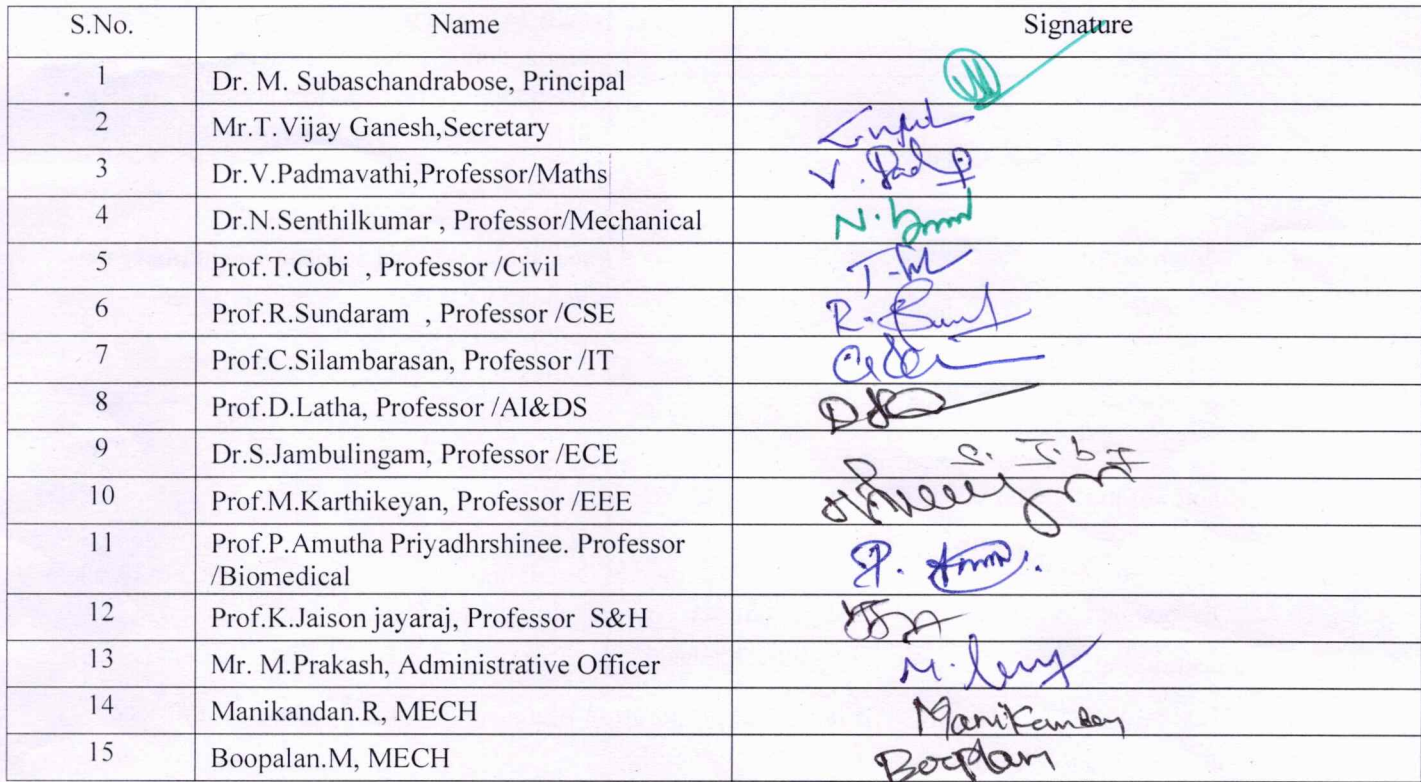 S.No. Name Signature
1 Dr. M. Subaschandrabose, Principal
2 Mr.T.Vijay Ganesh,Secretary
3 Dr.V.Padmavathi,Professor/Maths V.
4 Dr.N.Senthilkumar , Professor/Mechanical N.
5 Prof.T.Gobi , Professor /Civil
6 Prof.R.Sundaram , Professor /CSE R.
7 Prof.C.Silambarasan, Professor /IT
8 Prof.D.Latha, Professor /AI&DS
9 Dr.S.Jambulingam, Professor /ECE
10 Prof.M.Karthikeyan, Professor /EEE
11 Prof.P.Amutha Priyadhrshinee. Professor
/Biomedical P.
12 Prof.K.Jaison jayaraj, Professor S&H
13 Mr. M.Prakash, Administrative Officer M.
14 Manikandan.R, MECH Manikandan
15 Boopalan.M, MECH Boopalan